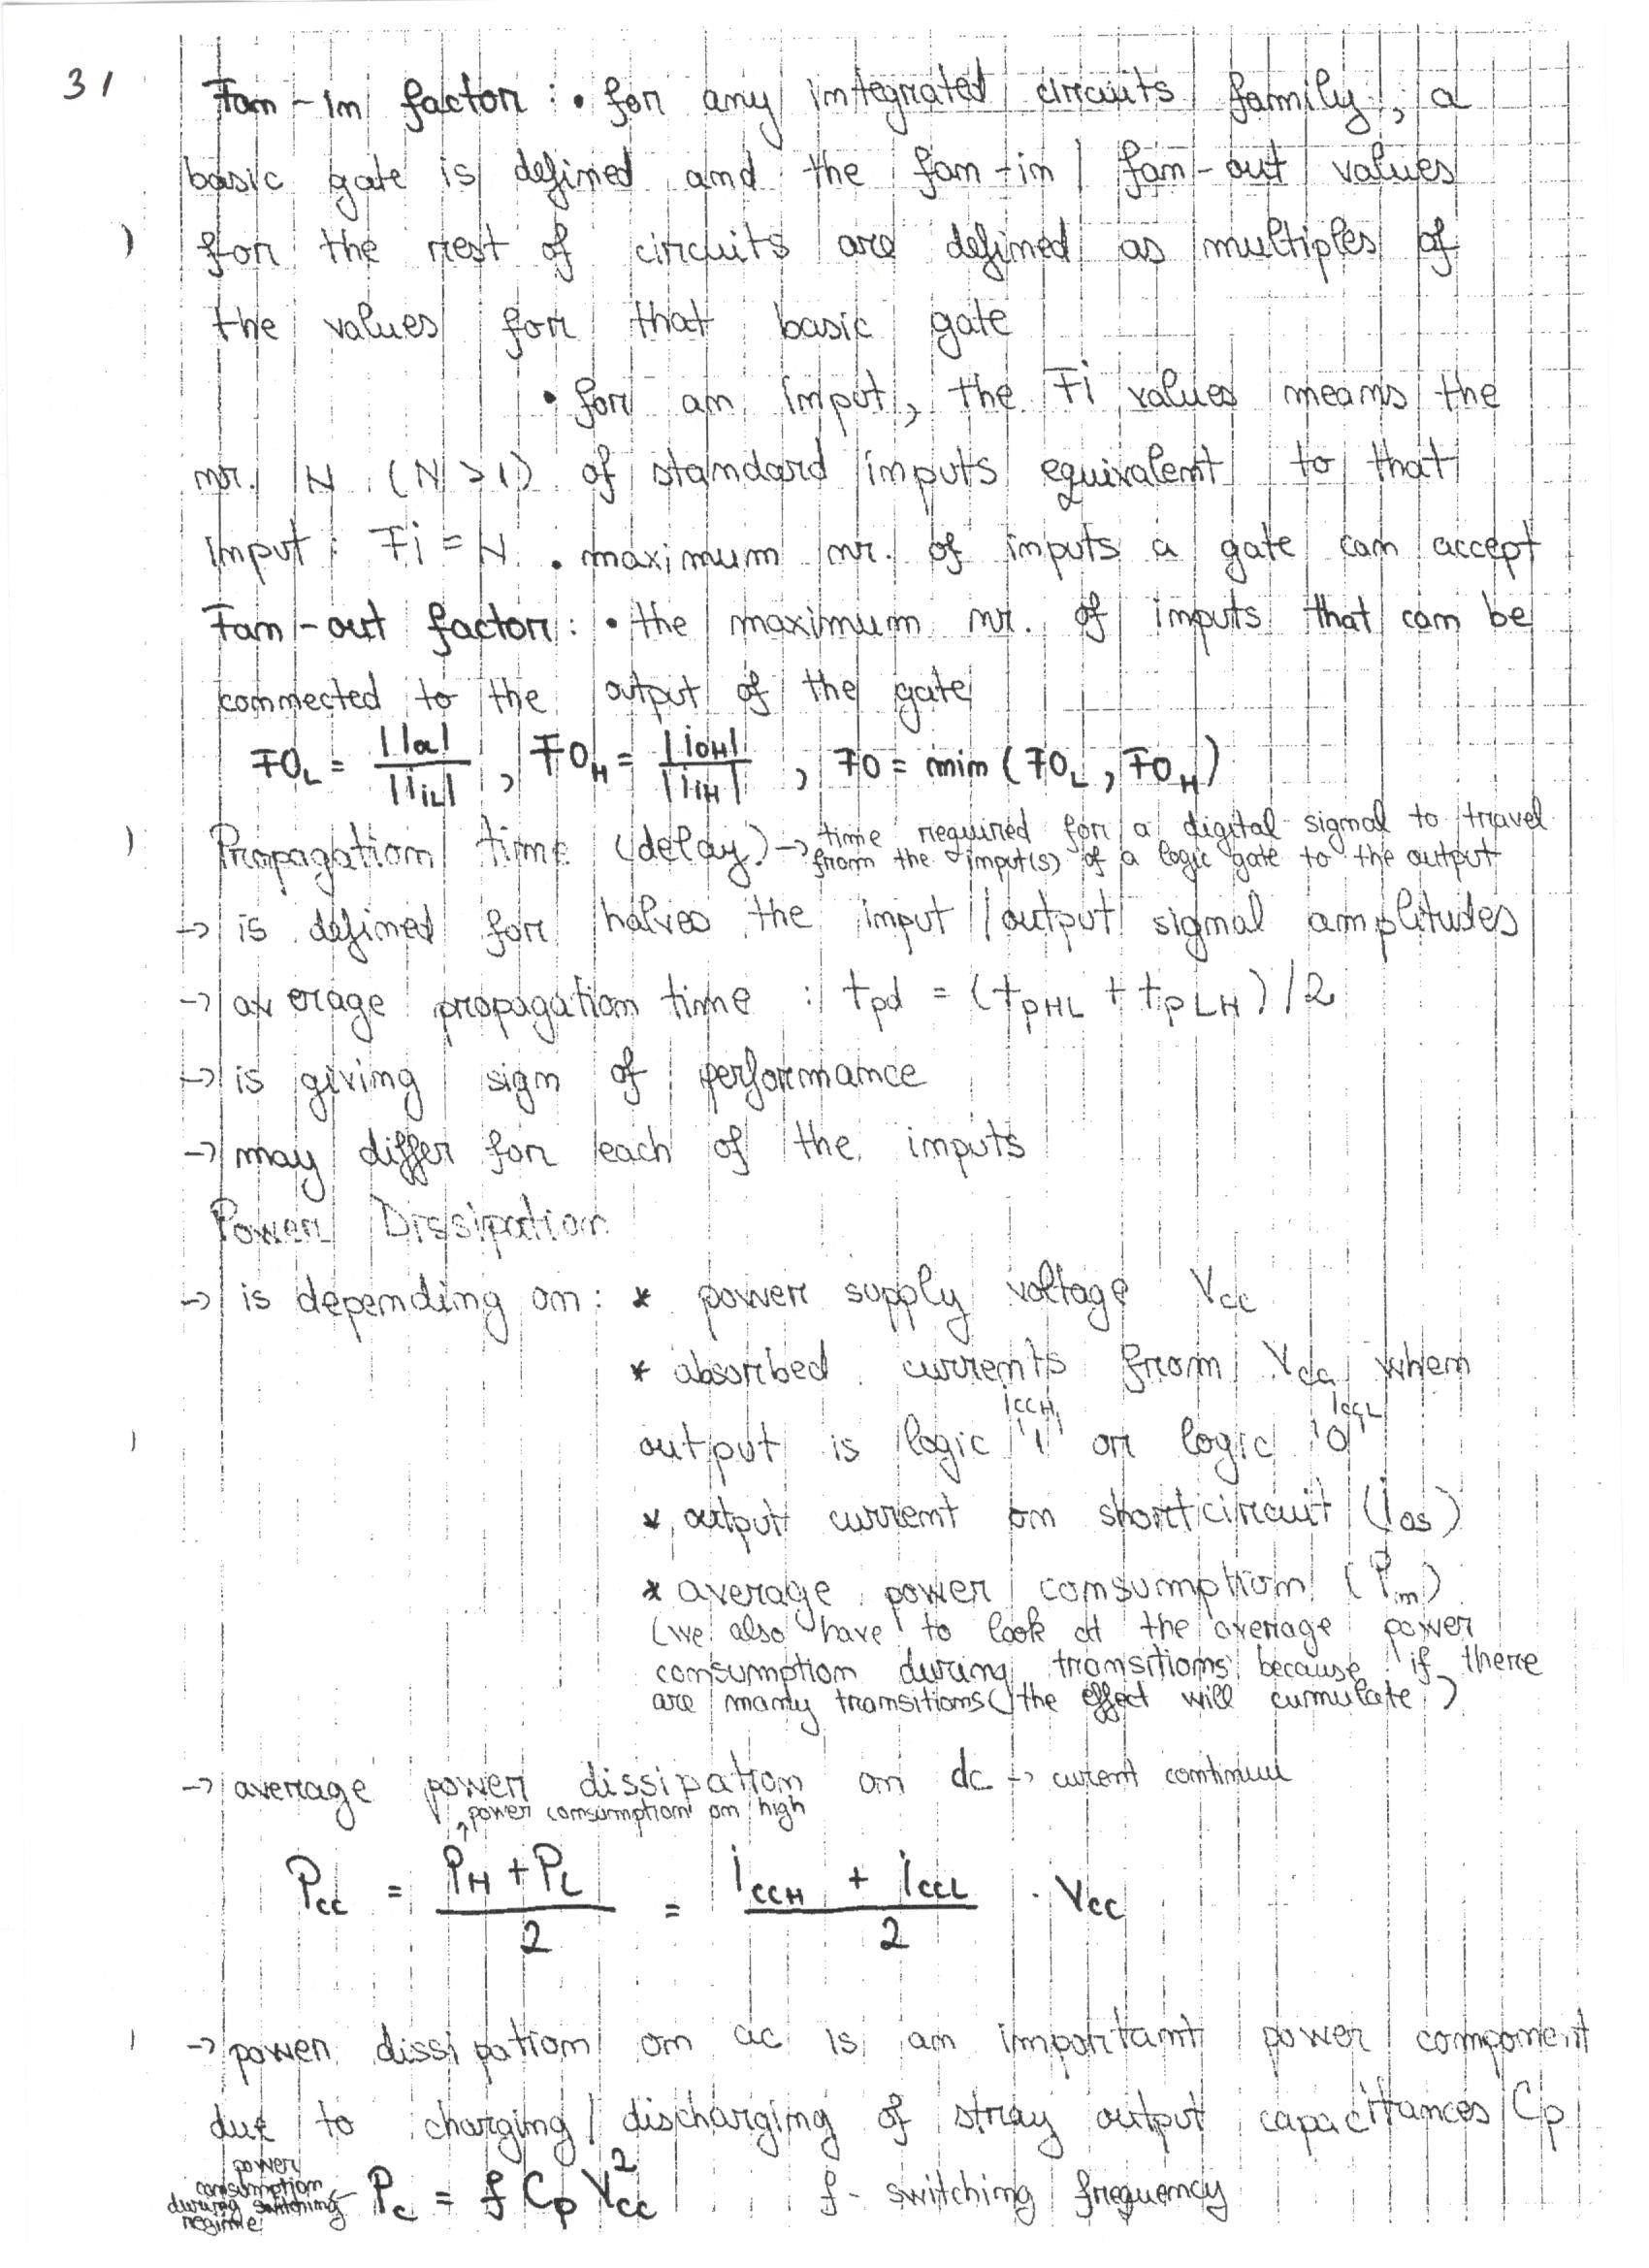 31
Fan-in factor: • for any integrated circuits family, a
basic gate is defined and the fan-in / fan-out values
for the rest of circuits are defined as multiples of
the values for that basic gate
• for an input, the Fi values means the
nr. N (N>1) of standard inputs equivalent to that
input: Fi = N • maximum nr. of inputs a gate can accept
Fan-out factor: • the maximum nr. of inputs that can be
connected to the output of the gate
FO_L = |I_OL| / |I_iL| , FO_H = |i_OH| / |i_iH| , FO = min (FO_L, FO_H)
Propagation time (delay) → time required for a digital signal to travel
from the input(s) of a logic gate to the output
→ is defined for halves the input / output signal amplitudes
→ average propagation time : t_pd = (t_pHL + t_pLH) / 2
→ is giving sign of performance
→ may differ for each of the inputs
Power Dissipation
→ is depending on: * power supply voltage V_cc
* absorbed currents from V_cc when
i_CCH i_CCL
output is logic '1' or logic '0'
* output current on shortcircuit (i_os)
* average power consumption (P_m)
(we also have to look at the average power
consumption during transitions because if there
are many transitions the effect will cumulate)
→ average power dissipation on dc → curent continuu
↗ power consumption on high
P_cc = (P_H + P_L) / 2 = (i_CCH + i_CCL) / 2 · V_cc
→ power dissipation on ac is an important power component
due to charging / discharging of stray output capacitances C_p
power
consumption
during switching
regime
← P_c = f C_p V_cc² f - switching frequency